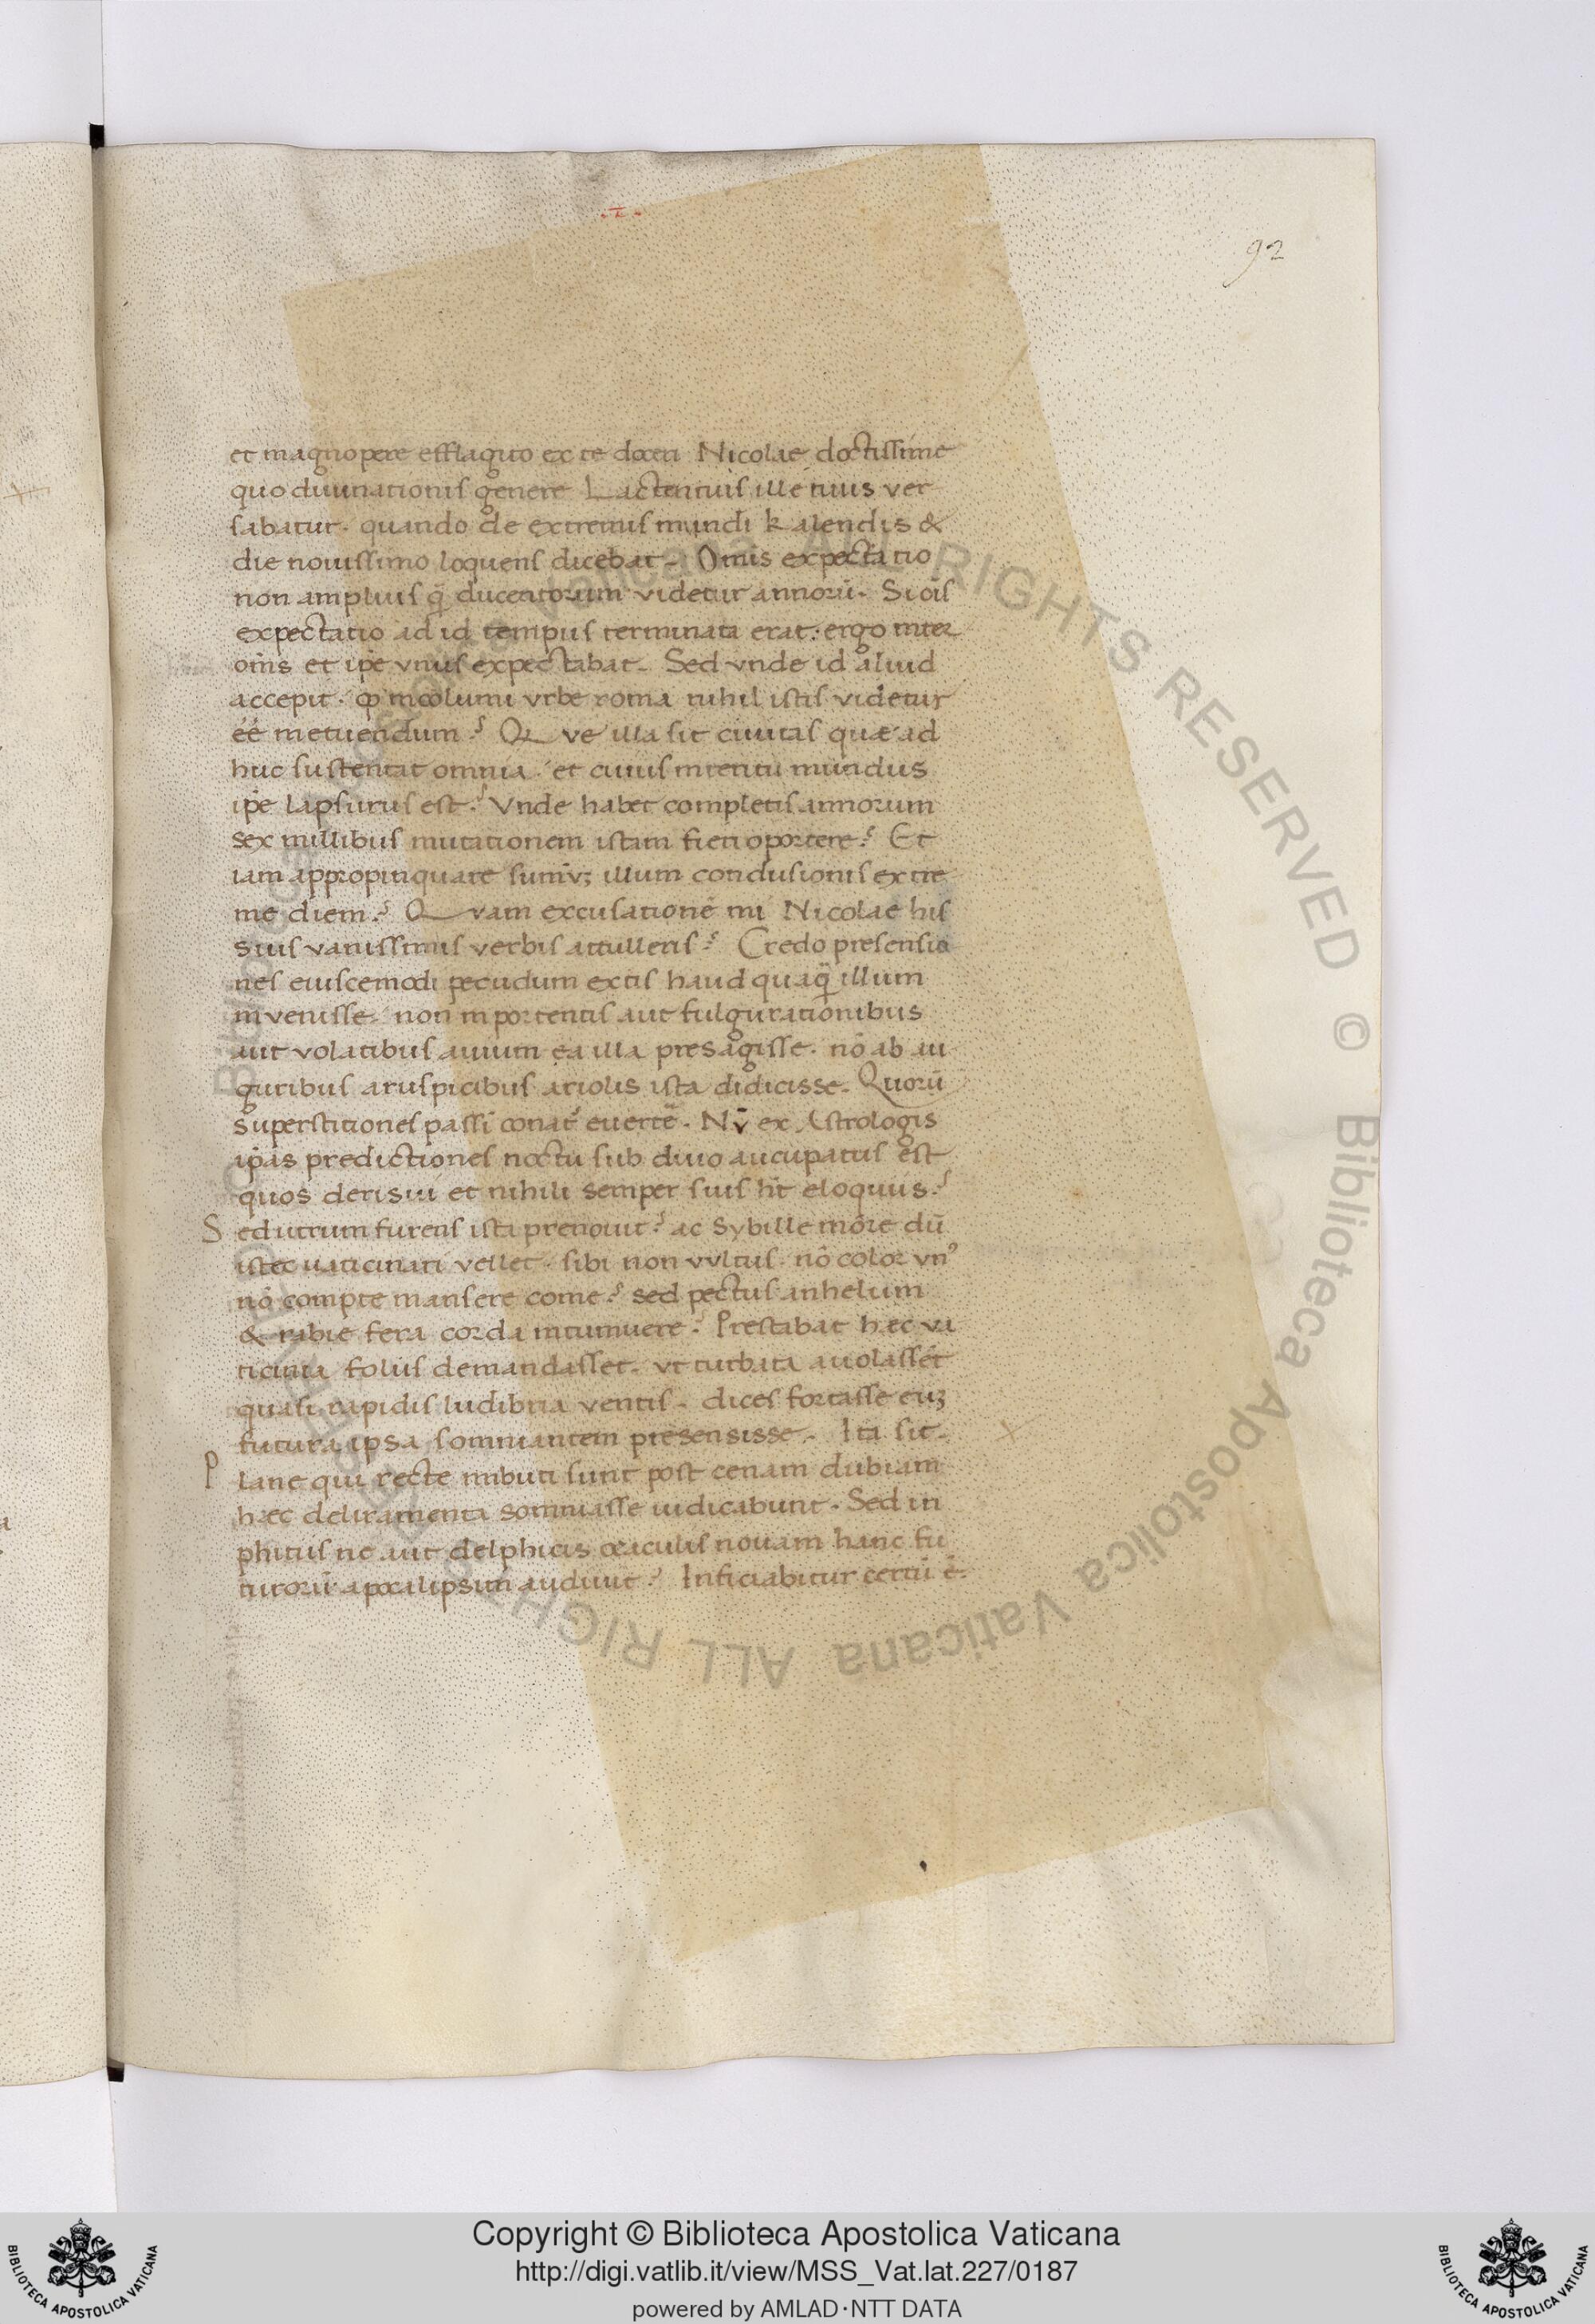 .I.
92
et magnopere efflagito ex te doceri Nicolae doctissime
quo diuinationis genere Lactentius ille tuus ver
sabatur. quando de extremis mundi kalendis &
die nouissimo loquens dicebat. Omīs expectatio
non amplius q̄ ducentorum videtur annorū. Si oīs
expectatio ad id tempus terminata erat: ergo inter
om̄s et ip̄e vnus expectabat. Sed vnde id aliud
accepit. ꝙ incolumi vrbe roma nihil istis videtur
éé metuendum? Qve illa sit ciuitas quæ ad
huc sustentat omnia. et cuius interitu mundus
ip̄e lapsurus est? Vnde habet completis annorum
sex millibus mutationem istam fieri oportere? Et
iam appropinquare sum̄vꝫ illum conclusionis extre
me diem? Qvam excusationē mi Nicolae his
suis vanissimis verbis attulleris? Credo presensio
nes eiuscemodi pecudum extis haud quaq̄ illum
invenisse. non in portentis aut fulgurationibus
aut volatibus auium ea illa presagisse. nō ab au
guribus aruspicibus ariolis ista didicisse. Quorū
superstitiones passī conat᷑ euertē. Nv̄ ex Astrologis
ip̄as predictiones noctu sub diuo aucupatus est
quos derisui et nihili semper suis ht̄ eloquiis?
Sed utrum furens ista prenouit? ac Sybille more dū
istec uaticinari vellet. sibi non vvltus. nō color vnꝰ
nō compte mansere come? sed pectus anhelum
& rabie fera corda intumuere? Prestabat hæc va
ticinia foliis demandasset. vt turbata auolassēt
quasi rapidis ludibria ventis. dices fortasse euꝫ
futura ipsa somniantem presensisse. Ita sit.
Plane qui recte imbuti sunt post cenam dubiam
hæc deliramenta somniasse iudicabunt. Sed in
phitus ne aut delphicis oraculis nouam hanc fu
turorū apocalipsim audiuit? Inficiabitur certū ē.
Copyright © Biblioteca Apostolica Vaticana
http://digi.vatlib.it/view/MSS_Vat.lat.227/0187
powered by AMLAD·NTT DATA
BIBLIOTECA APOSTOLICA VATICANA
BIBLIOTECA APOSTOLICA VATICANA
© Biblioteca Apostolica Vaticana ALL RIGHTS RESERVED